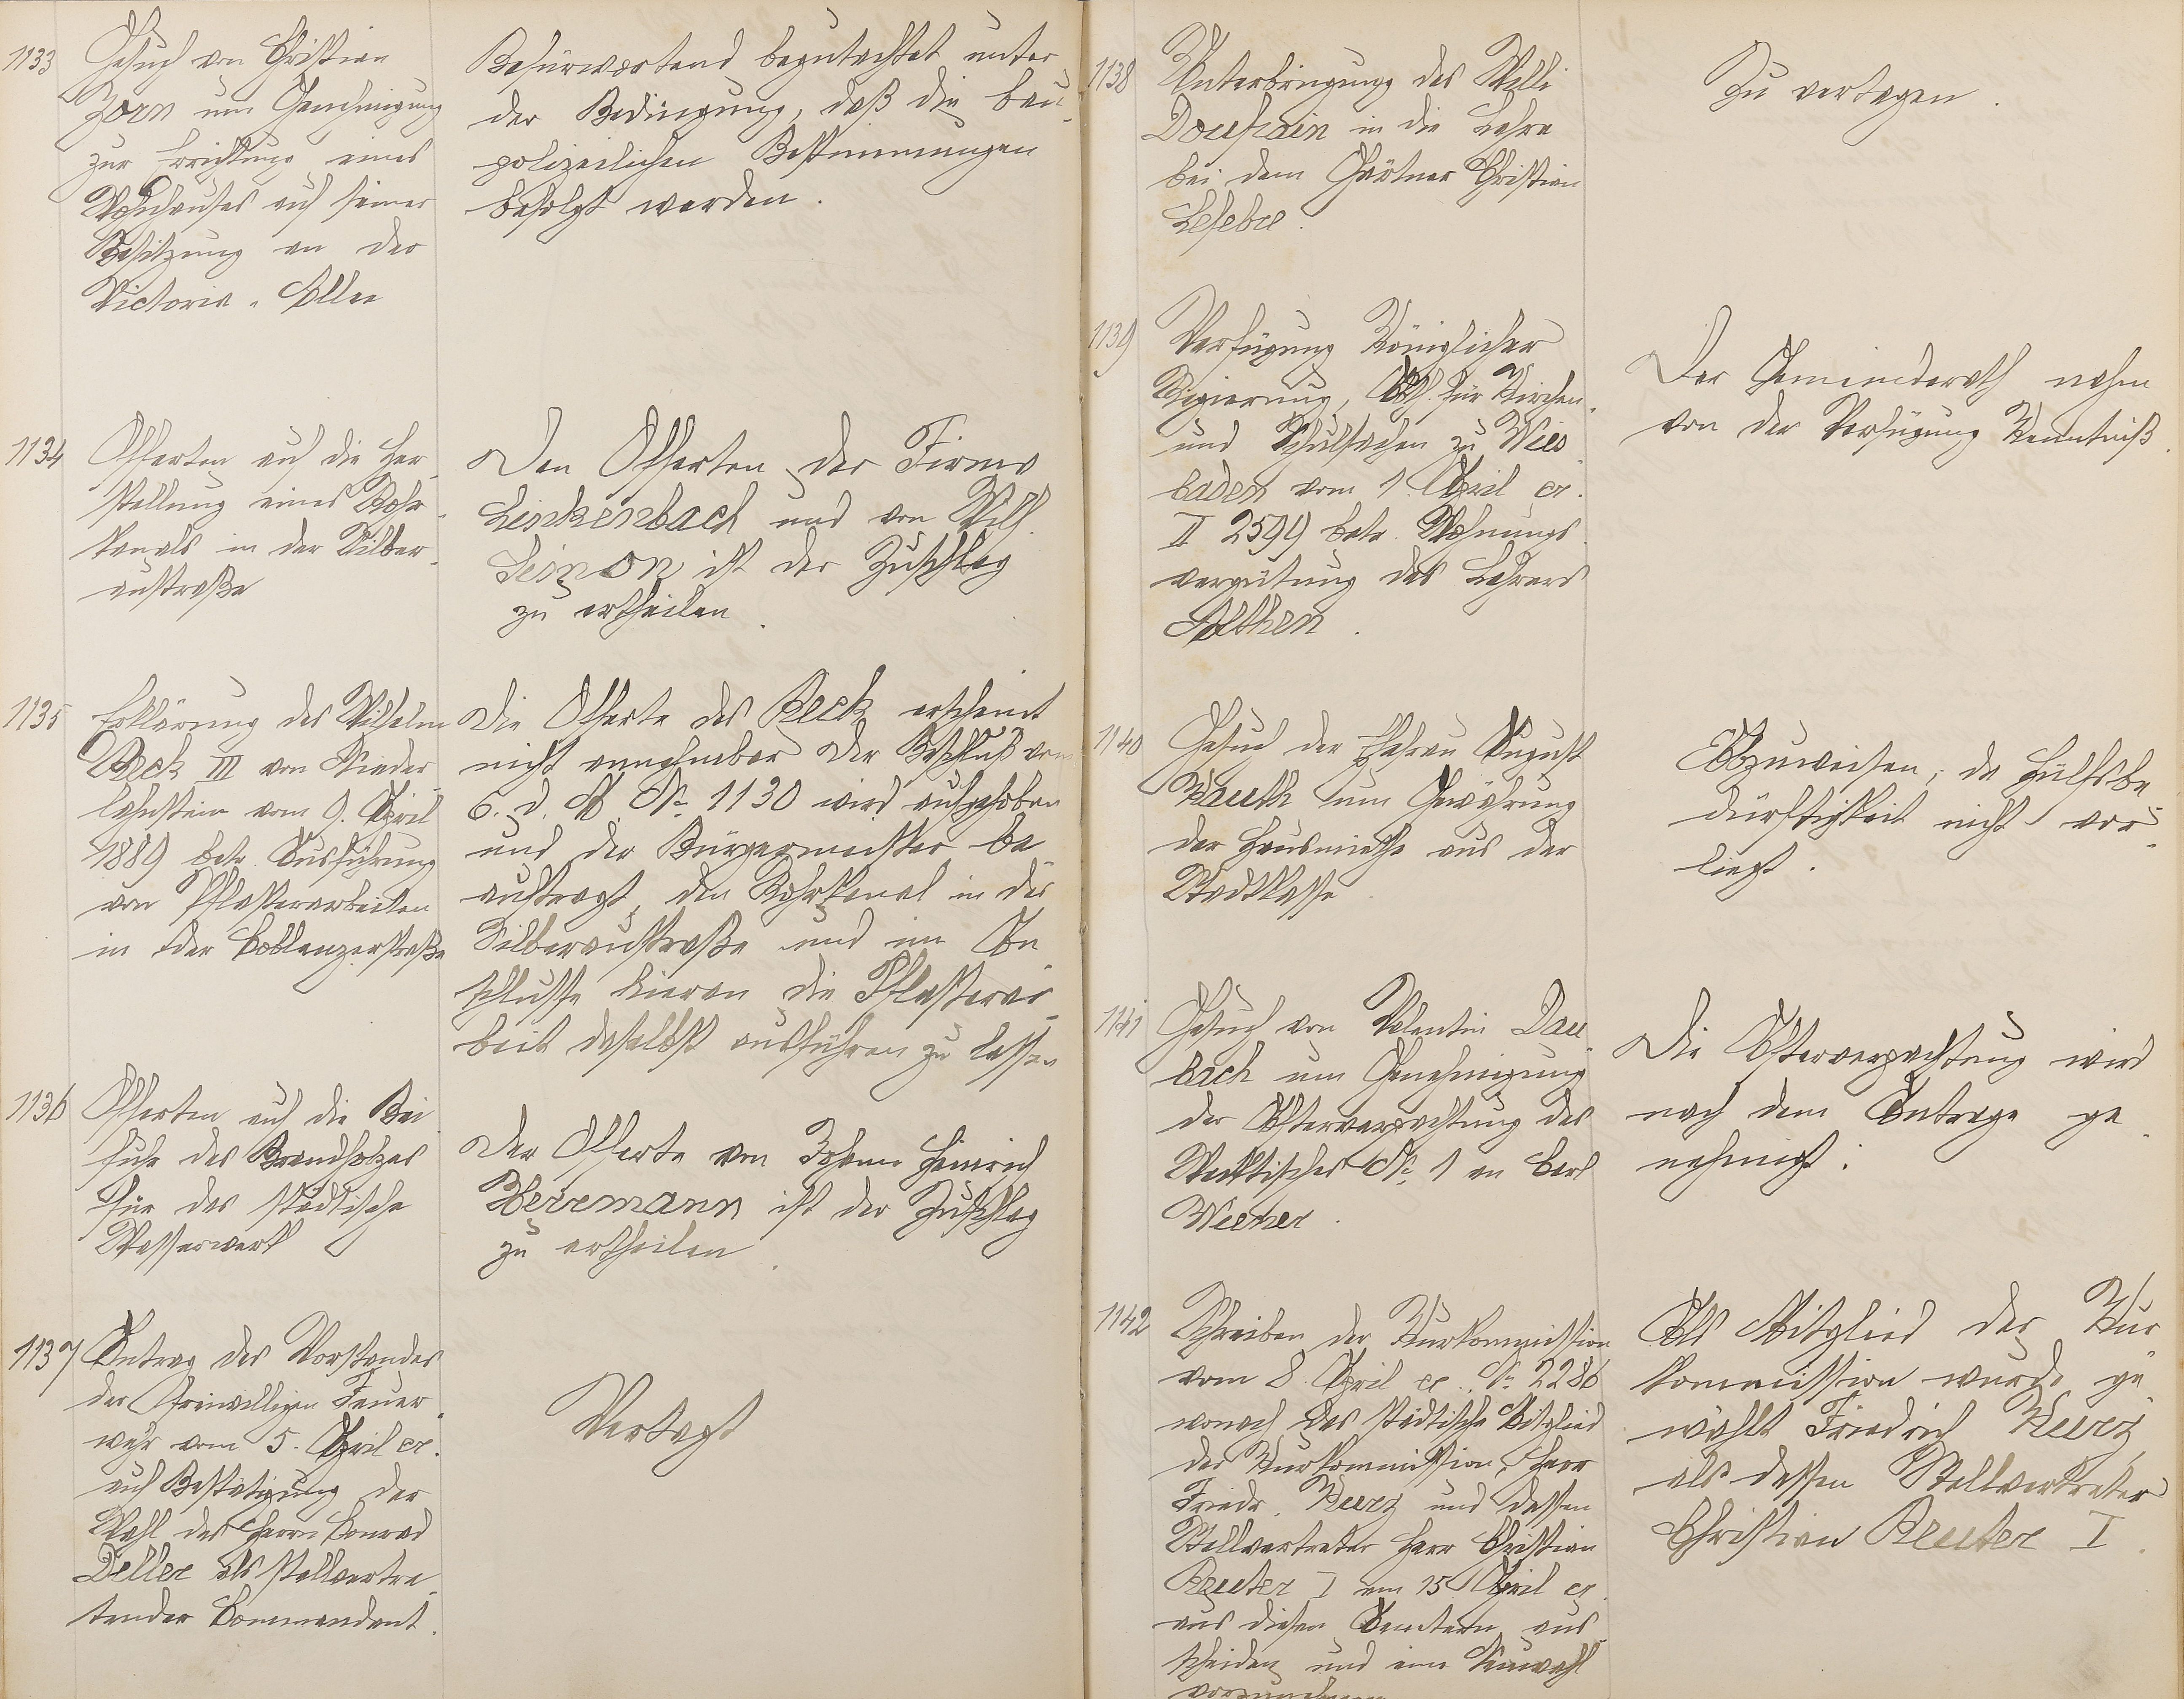 1133
Gesuch von Christian
Zorn um Genehmigung
zur Errichtung eines
Wohnhauses auf seiner
Besitzung an der
Victoria-Allee
Befürwortend begutachtet unter
der Bedingung, daß die bau-
polizeilichen Bestimmungen
befolgt werden.
1134
Offerten auf die Her-
stellung eines Rohr-
kanals in der Silber-
austraße
Den Offerten der Firma
Linkenbach und von Wilh.
Leinon ist der Zuschlag
zu ertheilen.
1135
Erklärung des Wilhelm
Beck III von Nieder-
lahnstein vom 9. April
1889 betr. Ausführung
von Pflasterarbeiten
in der Coblenzerstraße
Die Offerte des Beck erscheint
nicht annehmbar der Beschluß vom
6. d. M. No. 1130 wird aufgehoben
und der Bürgermeister be-
auftragt, den Rohrkanal in der
Silberaustraße und im An-
schlusse hieran die Pflasterar-
beit daselbst ausführen zu lassen
1136
Offerten auf die Bei-
fuhr des Brandholzes
für das städtische
Wasserwerk
Der Offerte von Johann Heinrich
Herrmann ist der Zuschlag
zu ertheilen.
1137
Antrag des Vorstandes
der freiwilligen Feuer-
wehr vom 5. April cr.
auf Bestätigung der
Wahl des Herrn Conrad
Deller als stellvertre-
tender Commandant.
Vertagt
1138
Unterbringung des Willi
Douffain in die Lehre
bei dem Gärtner Christian
Lefebre.
Zu vertagen.
1139
Verfügung Königlicher
Regierung, Abth. für Kirchen-
und Schulsachen zu Wies-
baden vom 1. April cr.
II 2599 betr. Wohnungs-
vergütung des Lehrers
Althen.
Der Gemeinderath nahm
von der Verfügung Kenntniß.
1140
Gesuch der Ehefrau August
Kauth um Gewährung
der Hausmiethe aus der
Stadtkasse
Abzuweisen, da Hülfsbe-
dürftigkeit nicht vor-
liegt.
1141
Gesuch von Valentin Dau-
bach um Genehmigung
der Afterverpachtung des
Markttisches No. 1 an Carl
Weener.
Die Afterverpachtung wird
nach dem Antrage ge-
nehmigt.
1142
Schreiben der Kurkommission
vom 8. April cr., No. 2286
wonach das städtische Mitglied
der Kurkommission, Herr
Friedr. Kurz und dessen
Stellvertreter Herr Christian
Reuter I am 15. April cr.
aus diesen Aemtern aus-
scheiden und eine Neuwahl
vorzunehmen
Als Mitglied der Kur-
kommission wurde ge-
wählt Friedrich Kurz,
als dessen Stellvertreter
Christian Reuter I.